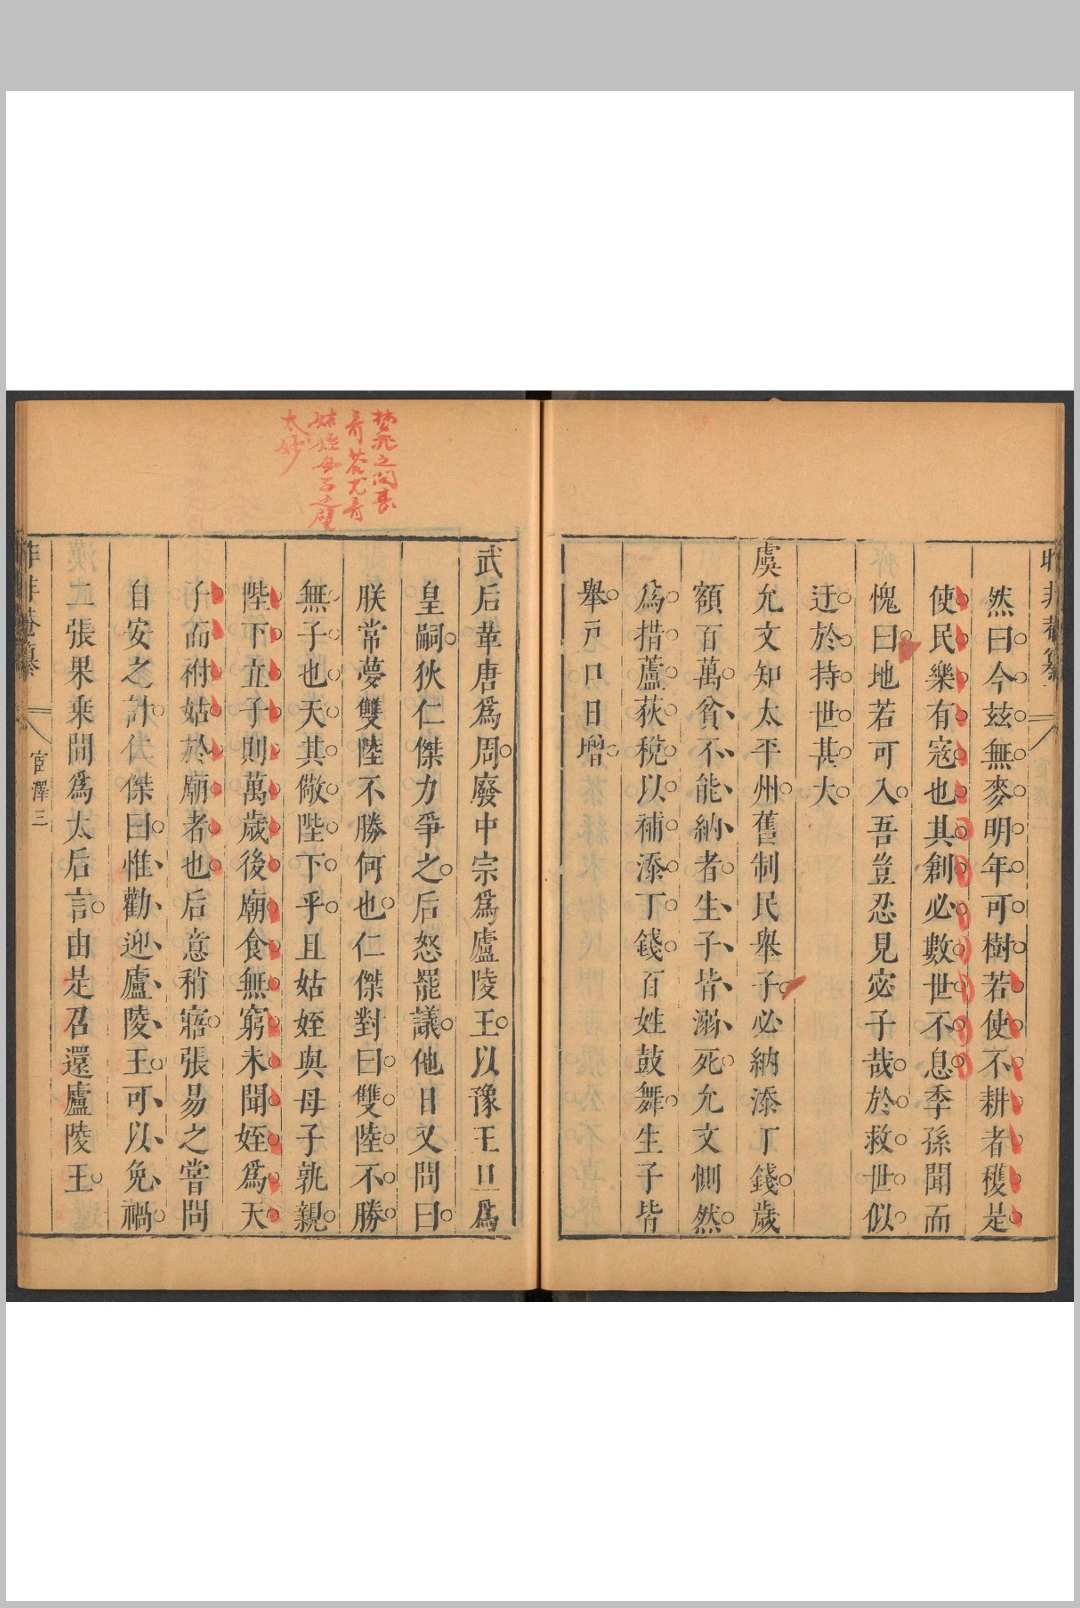 然曰今茲無麥明年可樹若使不耕者穫是
使民樂有寇也其創必數世不息季孫聞而
愧曰地若可入吾豈忍見宓子哉於救世似
迂於持世甚大
虞允文知太平州舊制民舉子必納添丁錢歲
額百萬貧不能納者生子皆溺死允文惻然
爲措蘆荻稅以補添丁錢百姓鼓舞生子皆
舉戸口日增
武后革唐爲周廢中宗爲廬陵王以豫王旦爲
皇嗣狄仁傑力爭之后怒罷議他日又問曰
朕常夢雙陸不勝何也仁傑對曰雙陸不勝
無子也天其儆陛下乎且姑姪與母子孰親
陛下立子則萬歲後廟食無窮未聞姪爲天
子而祔姑於廟者也后意稍寤張易之嘗問
自安之計仁傑曰惟勸迎廬陵王可以免禍
二張果乘間爲太后言由是召還廬陵王
菴纂
宦澤三
夢飛之問甚
奇答尤奇
姑姪母子之
太妙